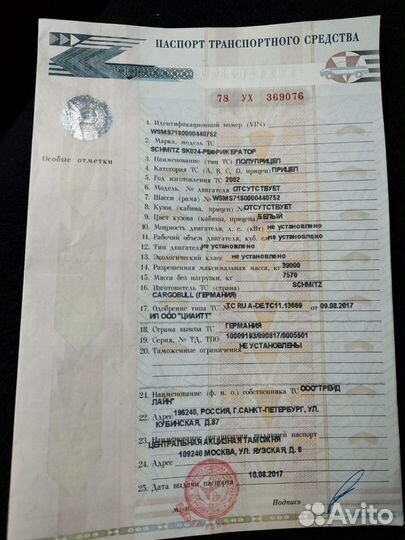 ПАСПОРТ ТРАНСПОРТНОГО СРЕДСТВА
78 УХ 369076
Особые отметки
1. Идентификационный номер (VIN)
WSMS7180000440752
2. Марка, модель ТС
SCHMITZ SK024-РЕФРИЖЕРАТОР
3. Наименование (тип ТС) ПОЛУПРИЦЕП
4. Категория ТС (A, B, C, D, прицеп) ПРИЦЕП
5. Год изготовления ТС 2002
6. Модель, № двигателя ОТСУТСТВУЕТ
7. Шасси (рама) № WSMS7180000440752
8. Кузов (кабина, прицеп) ОТСУТСТВУЕТ
9. Цвет кузова (кабины, прицепа) БЕЛЫЙ
10. Мощность двигателя, л. с. (кВт) не установлено
11. Рабочий объем двигателя, куб. см не установлено
12. Тип двигателя не установлено
13. Экологический класс не установлено
14. Разрешенная максимальная масса, кг 39000
15. Масса без нагрузки, кг 7570
16. Изготовитель ТС (страна) SCHMITZ
CARGOBULL (ГЕРМАНИЯ)
17. Одобрение типа ТС № ТС RU A-DE.TC11.13669 от 09.08.2017
ИЛ ООО "ЦИАИТТ"
18. Страна вывоза ТС ГЕРМАНИЯ
19. Серия, № ТД, ТПО 10009193/090817/0005501
20. Таможенные ограничения НЕ УСТАНОВЛЕНЫ
21. Наименование (ф. и. о.) собственника ТС ООО"ТРЕЙД
ЛАЙН"
22. Адрес 196240, РОССИЯ, Г.САНКТ-ПЕТЕРБУРГ, УЛ.
КУБИНСКАЯ, Д.87
23. Наименование организации, выдавшей паспорт
ЦЕНТРАЛЬНАЯ АКЦИЗНАЯ ТАМОЖНЯ
24. Адрес 109240 МОСКВА, УЛ. ЯУЗСКАЯ, Д. 8
25. Дата выдачи паспорта 10.08.2017
М. П. Подпись
Avito